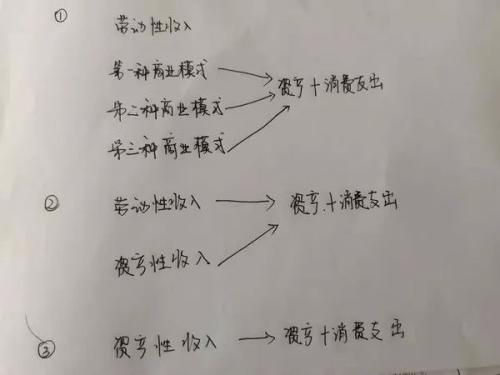 ① 劳动性收入
第一种商业模式
第二种商业模式 → 资产+消费支出
第三种商业模式
② 劳动性收入 → 资产+消费支出
资产性收入
③ 资产性收入 → 资产+消费支出